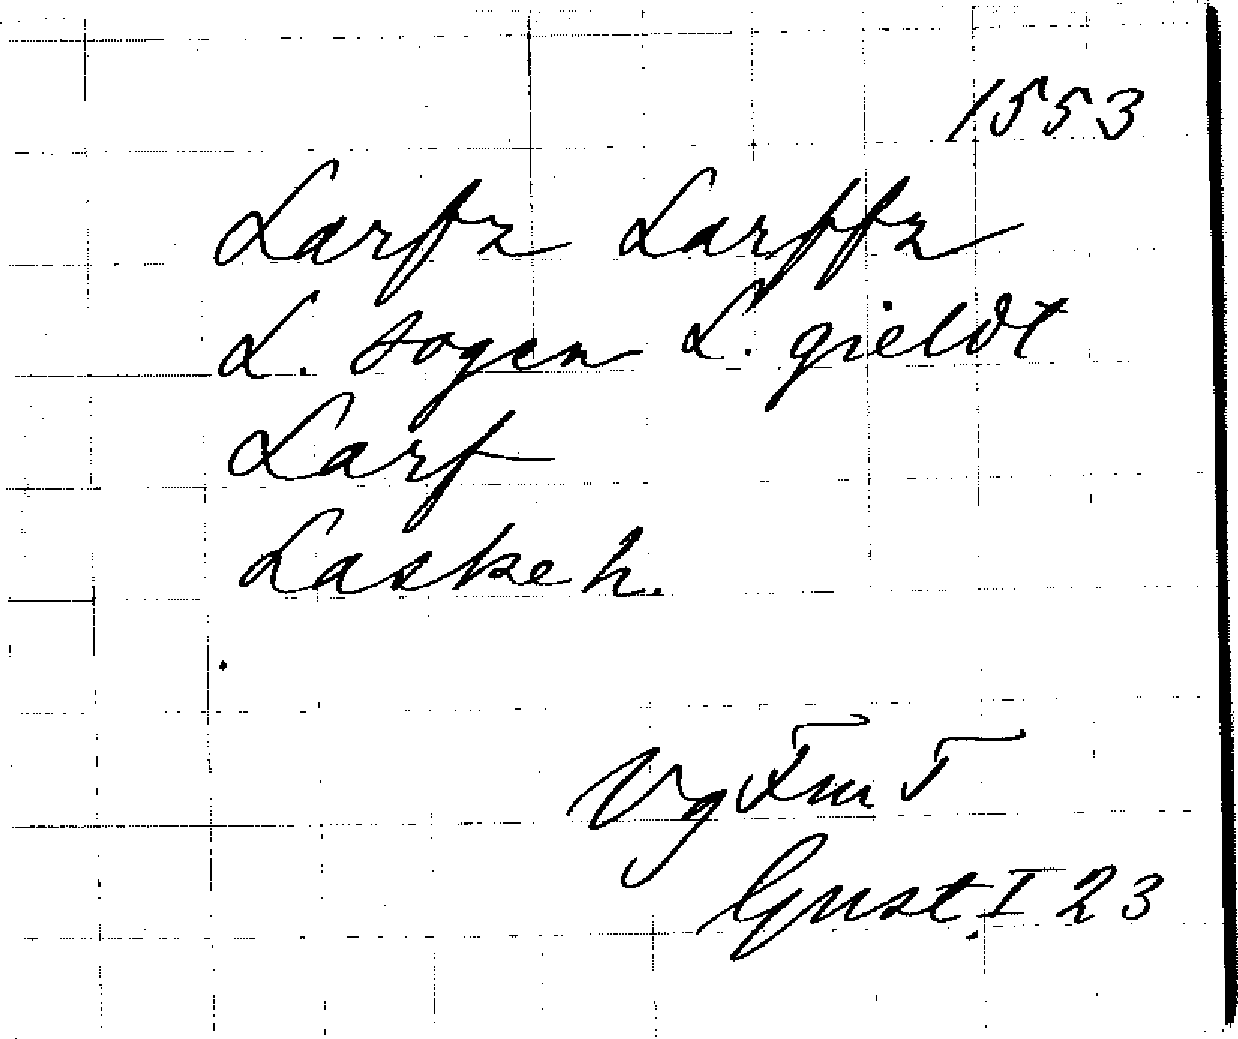 1553
Larfz Larffz
L. sogen L. gieldt
Larf
Laske h.
Vg Fm T
Gust. I 23